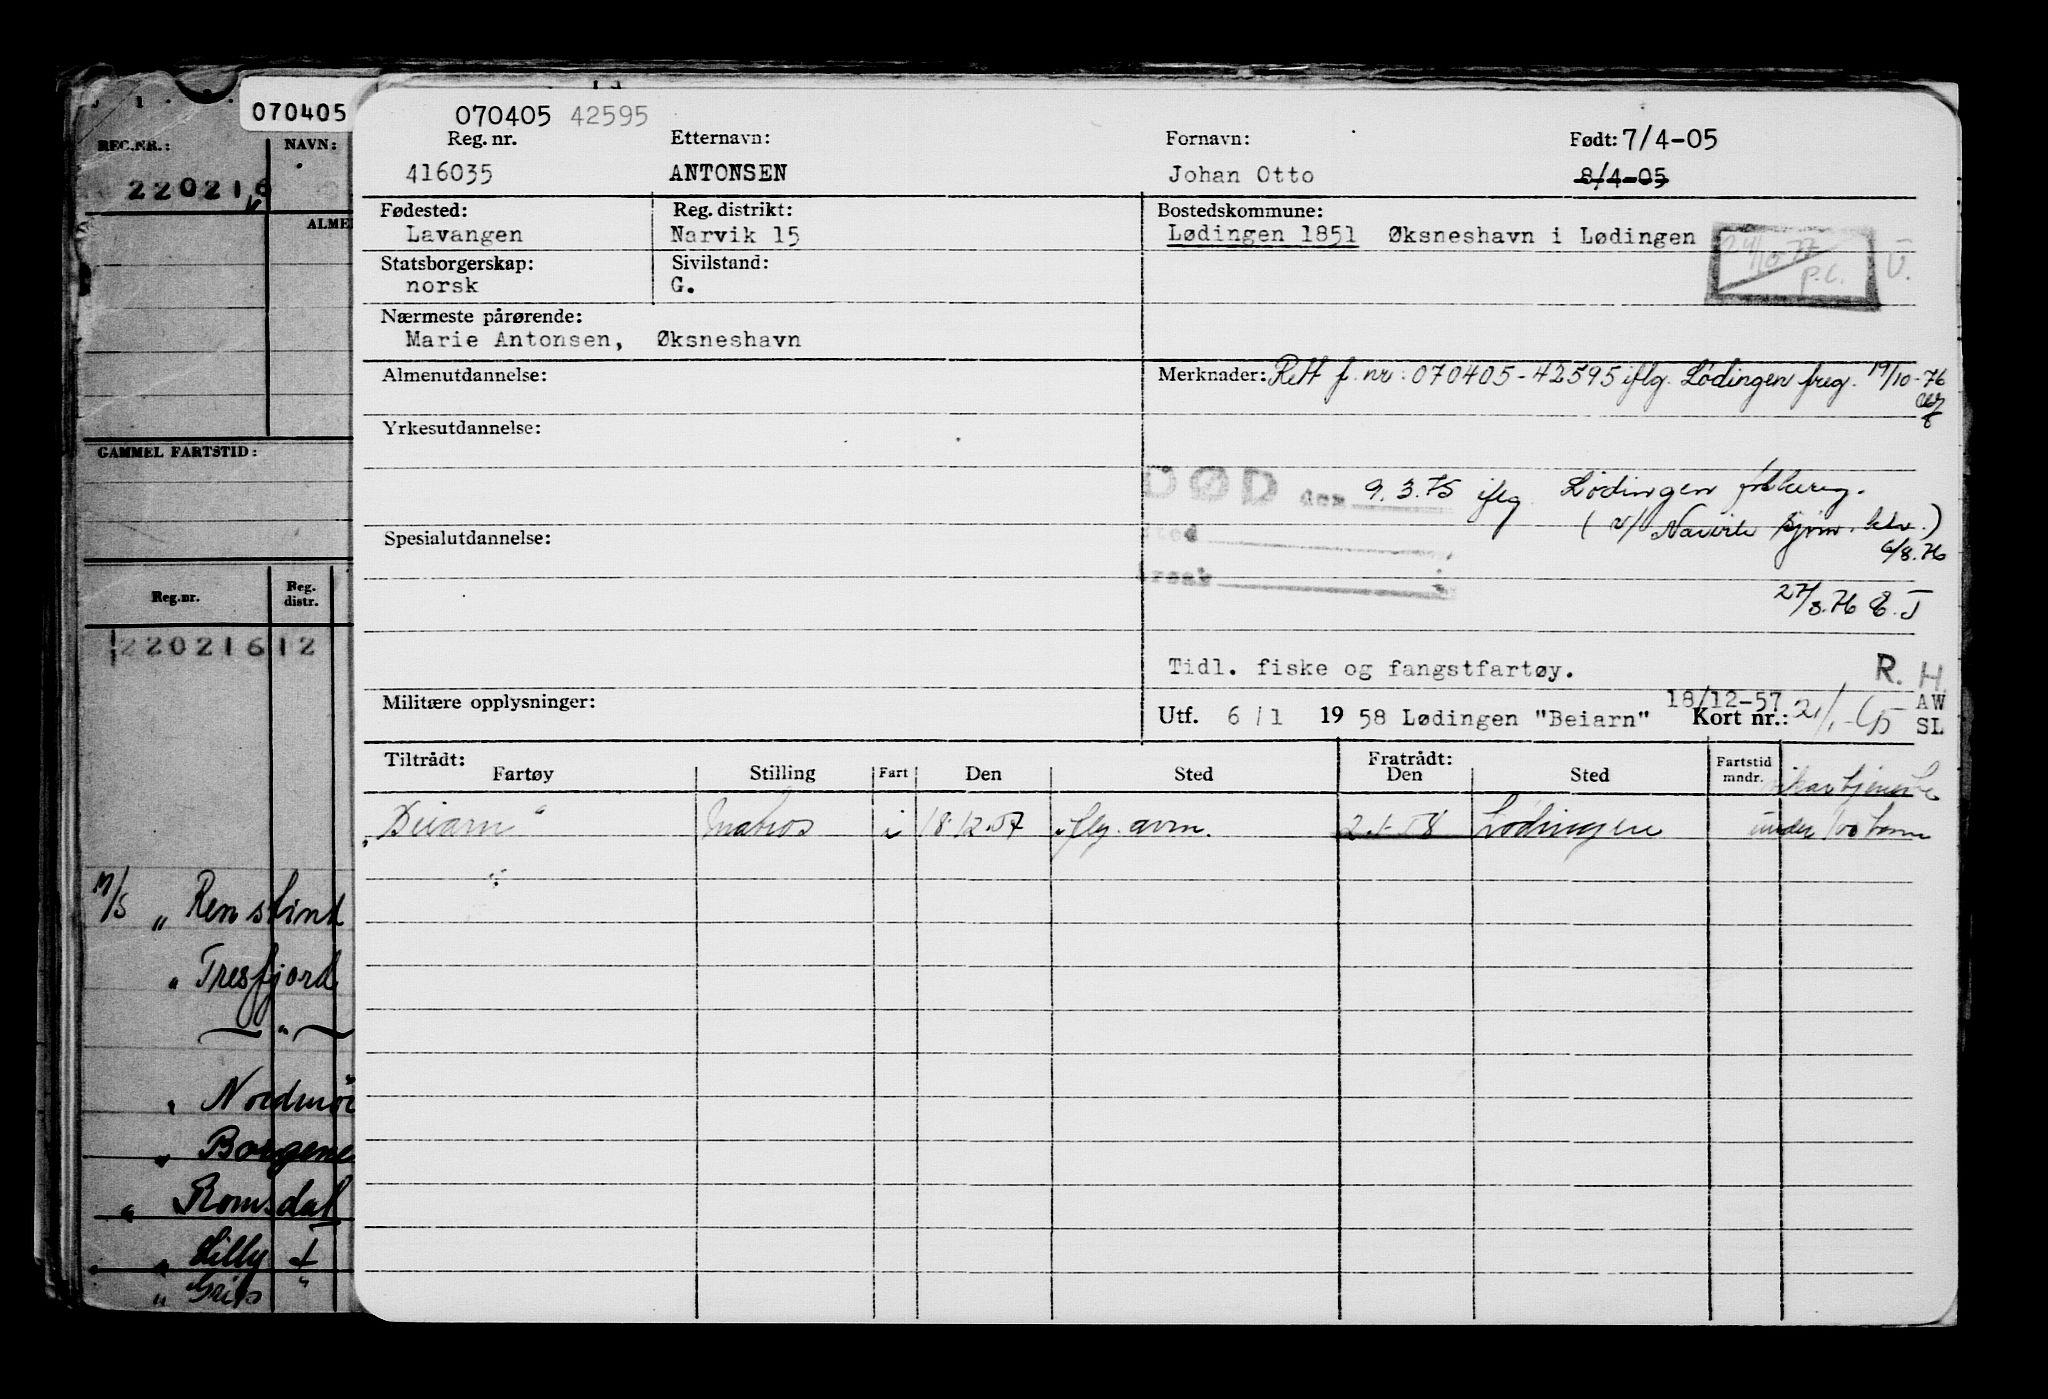 070405
REG.NR.:
NAVN:
220216
ALME
GAMMEL FARTSTID:
Reg.nr.
Reg. distr.
220216 12
M/S " Renstind
" Tresfjord
— " —
" Nordmør
" Borgene
" Romsdal
" Lilly
" Grip "
070405 42595
Reg. nr. Etternavn: Fornavn: Født: 7/4-05
416035 ANTONSEN Johan Otto 8/4-05
Fødested: Reg. distrikt: Bostedskommune:
Lavangen Narvik 15 Lødingen 1851 Øksneshavn i Lødingen
Statsborgerskap: Sivilstand:
norsk G.
P.C.
Nærmeste pårørende:
Marie Antonsen, Øksneshavn
Almenutdannelse: Merknader: Rett f. nr: 070405-42595 iflg. Lødingen freg. 19/10-76
Yrkesutdannelse:
DØD den 9.3.75 iflg Lødingen folkereg.
(v/ Narvik sjøm. ktr.)
Sted
6/8.76
Spesialutdannelse:
Årsak
27/8.76 E.J
Tidl. fiske og fangstfartøy. R. H
Militære opplysninger: 18/12-57 AW
Utf. 6/1 1958 Lødingen "Beiarn" Kort nr.: SL
Tiltrådt: Fratrådt: Fartstid
Fartøy Stilling Fart Den Sted Den Sted mndr.
"Beiarn" Matros i 18.12.57 iflg. avm. 2.1.58 Lødingen under 100 tonn